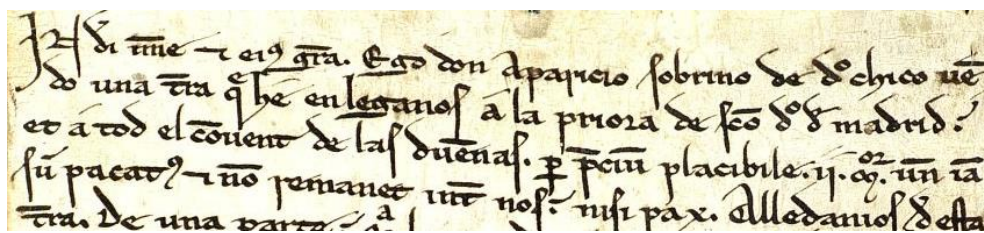 IN di nn̄e ⁊ eiꝰ gr̄a. Ego don Aparicio sobrino de dº chico uē
do una tr̄a q̄ hé en leganos á la priora de sc̄o dº đ madrid.
et á tod el c̄ouent de las duen̄as. ꝑ p̄ciū placibile. ij. m̄ꝛ. un̄ iā
sū pacatꝰ ⁊ nō remanet int̄ nos. nisi pax. Alledanios đ esta
tr̄a. De una parte